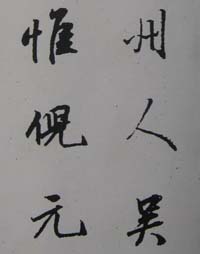 州人吴
惟倪元